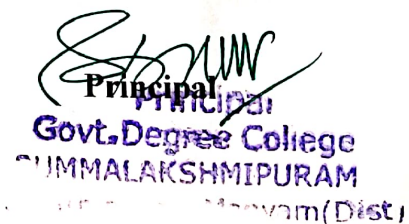 Principal
Principal
Govt. Degree College
GUMMALAKSHMIPURAM
(Dist)